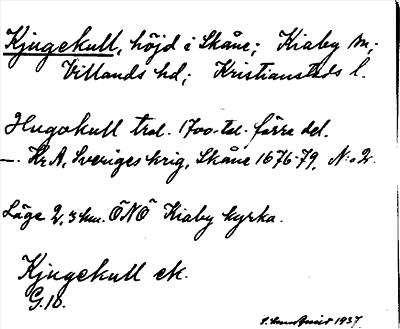 Kjugekull, höjd i Skåne; Kiaby sn;
Villands hd; Kristianstads l.
Hugokull trol. 1700-tal. förra del.
—. KrA, Sveriges krig, Skåne 1676-79, N:o 2.
Läge 2,3 km. ÖNÖ Kiaby kyrka.
Kjugekull ek.
G. 10.
1937.